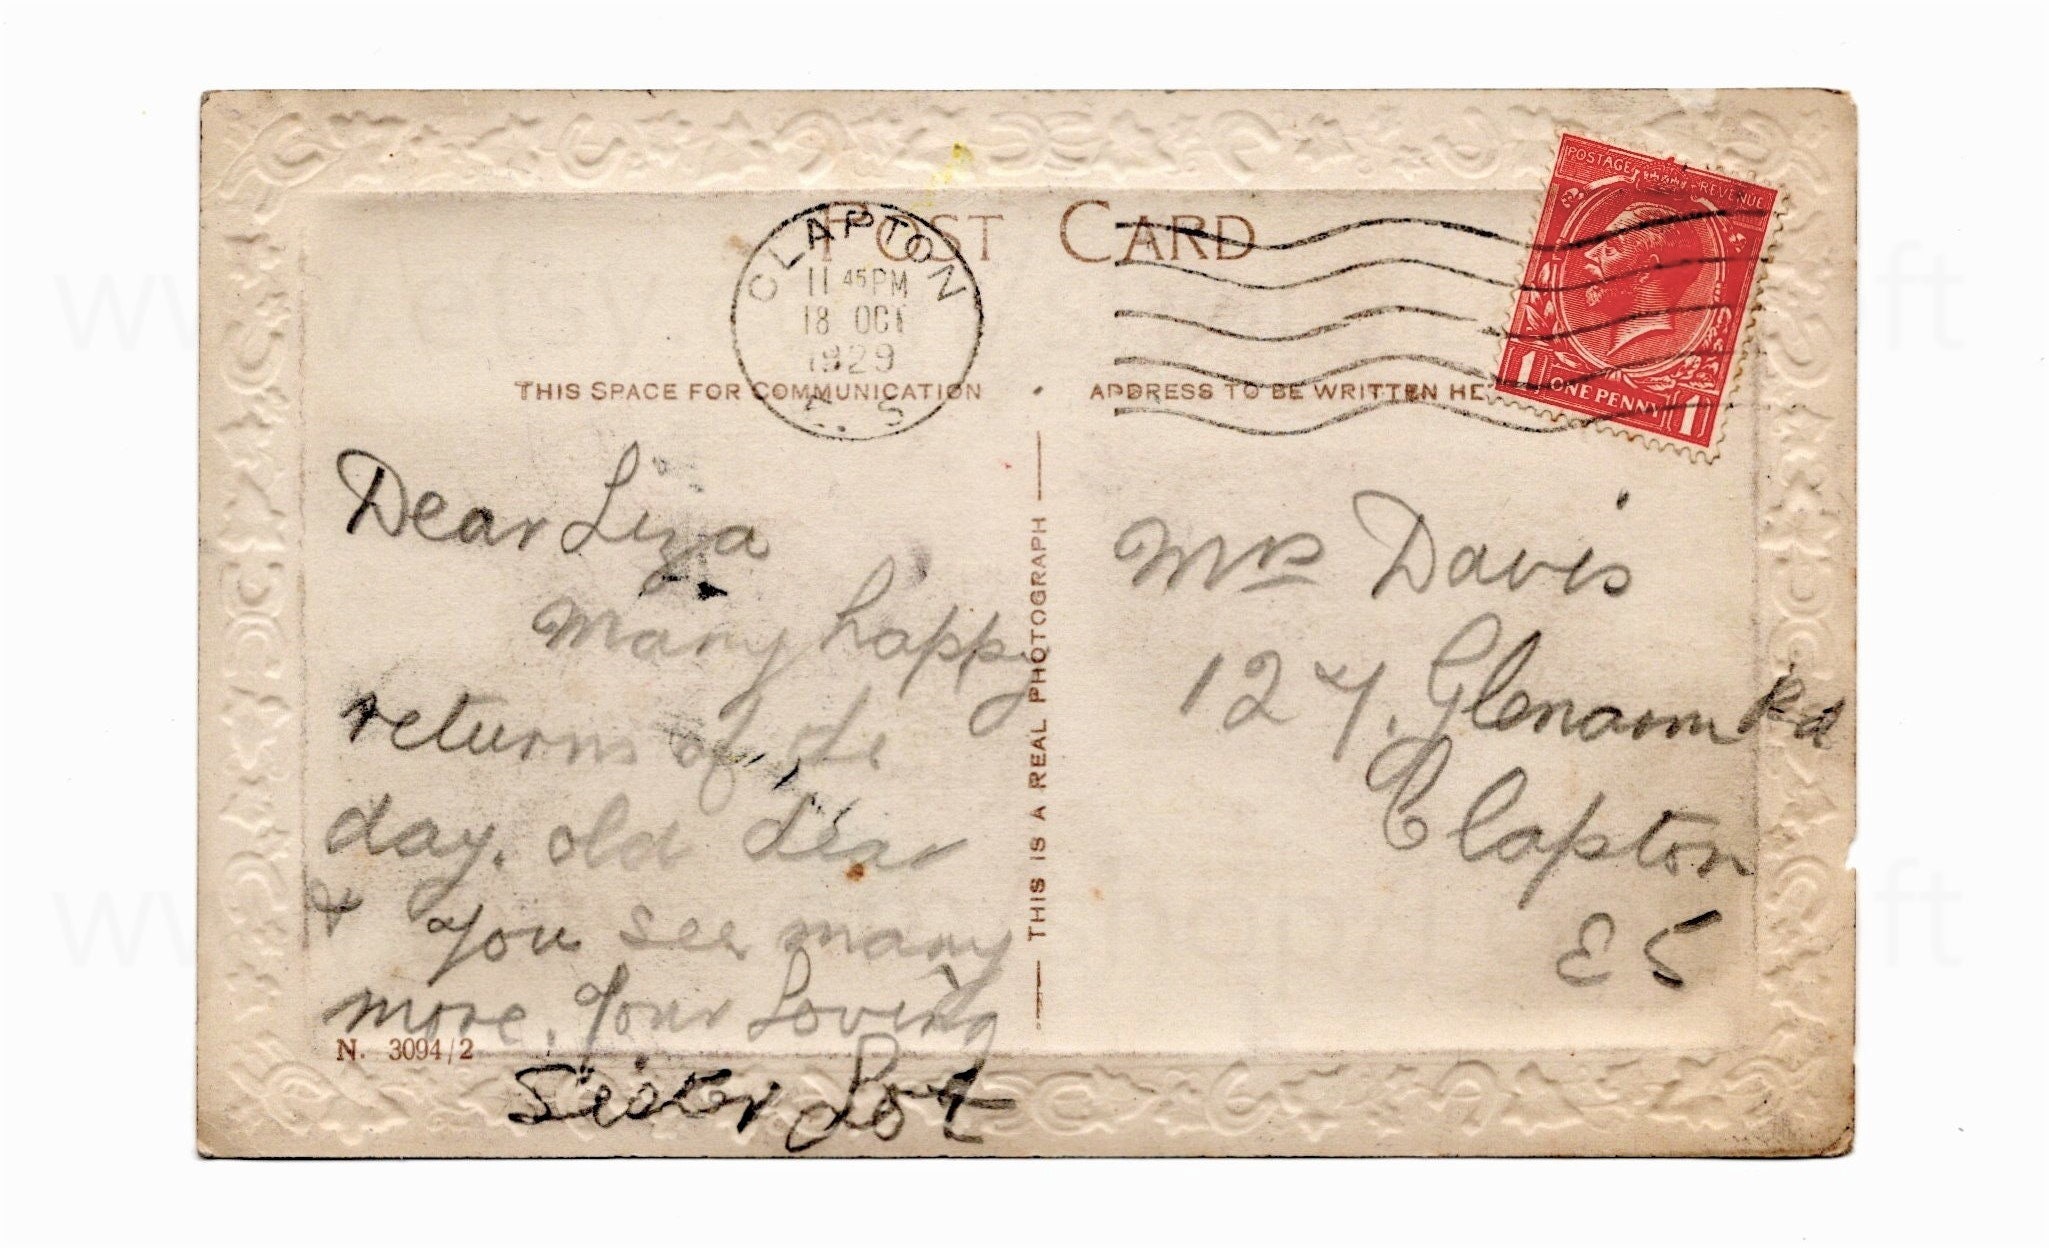 POST CARD
CLAPTON
11 45 PM
18 OCT
1929
THIS SPACE FOR COMMUNICATION
ADDRESS TO BE WRITTEN HE
POSTAGE REVENUE
1 ONE PENNY 1
Dear Liza
Many happy
returns of the
day. old dear
& you see many
more. Your Loving
Sister Lot
N. 3094/2
THIS IS A REAL PHOTOGRAPH
Mrs Davis
127. Glenarm Rd
Clapton
E 5